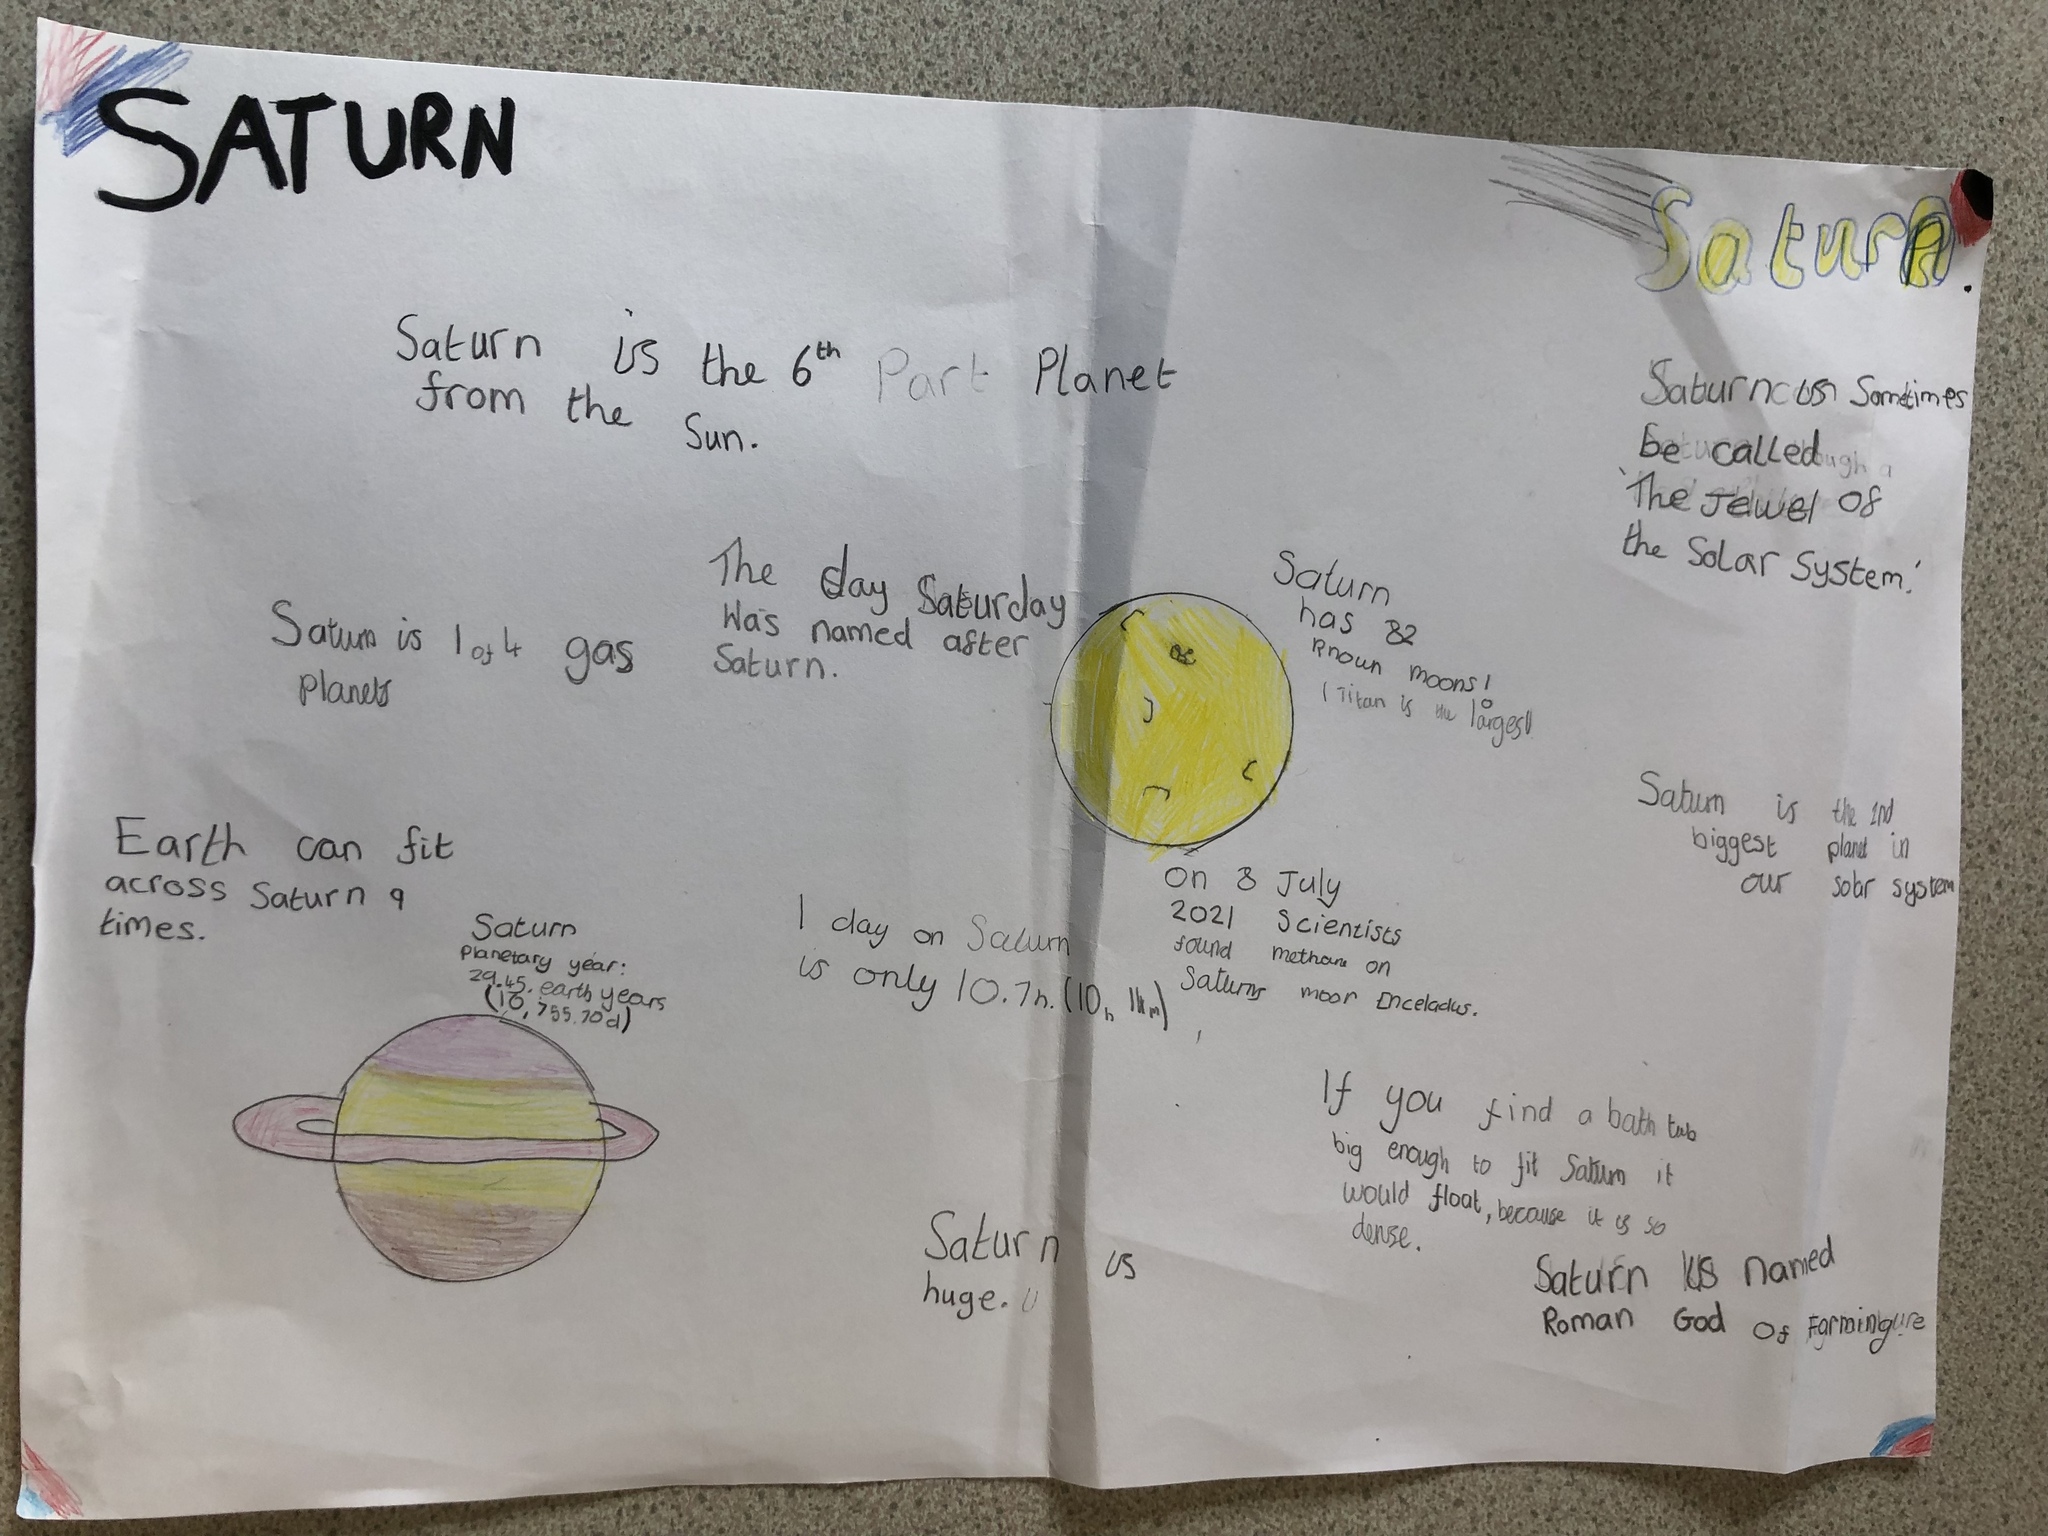 SATURN
Saturn
Saturn is the 6th Part Planet
from the Sun.
Saturn is Sometimes
be called
'The Jewel Of
the Solar System.'
The day Saturday
was named after
Saturn.
Saturn is 1 of 4 gas
planets
Saturn
has 82
known moons!
(Titan is the largest)
Earth can fit
across Saturn 9
times.
Saturn is the 2nd
biggest planet in
our solar system
Saturn
Planetary year:
29.45. earth years
(10,755.70d)
1 day on Saturn
is only 10.7h. (10h 11m)
On 8 July
2021 Scientists
found methane on
Saturns moon Enceladus.
If you find a bath tub
big enough to fit Saturn it
would float, because it is so
dense.
Saturn is
huge.
Saturn is named
Roman God Of Farming